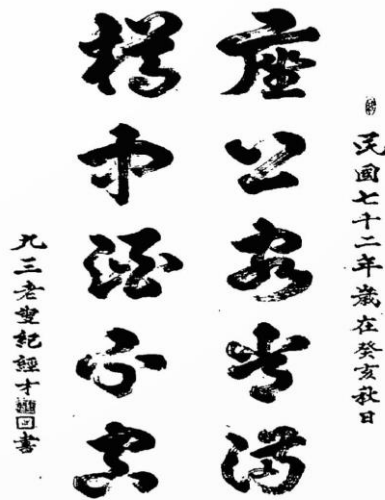 民國七十二年歲在癸亥秋日
座上客常滿
樽中酒不空
九三老叟紀經才書